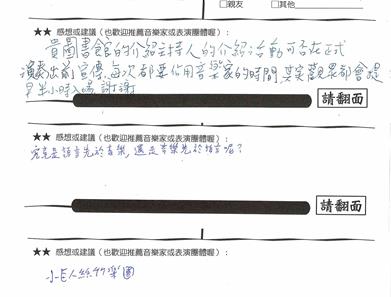 □親友 □其他
★★ 感想或建議（也歡迎推薦音樂家或表演團體喔）：
貴圖書館的介紹主持人的介紹活動可否在正式
演奏出前宣傳,每次都要佔用音樂家的時間,其實觀眾都會提
早半小時入場,謝謝
請翻面
★★ 感想或建議（也歡迎推薦音樂家或表演團體喔）：
究竟是語言先於音樂,還是音樂先於語言呢?
請翻面
★★ 感想或建議（也歡迎推薦音樂家或表演團體喔）：
小巨人絲竹樂團